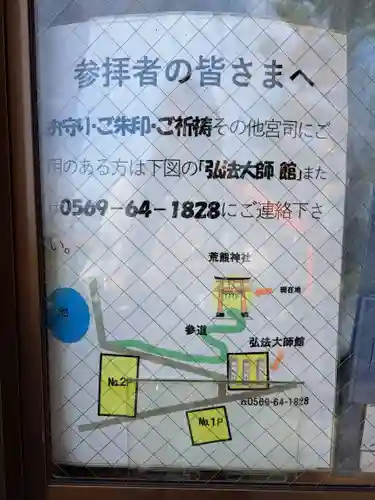 参拝者の皆さまへ
お守り・ご朱印・ご祈祷その他宮司にご
用のある方は下図の「弘法大師 館」また
は0569-64-1828にご連絡下さ
い。
荒熊神社
現在地
参道
弘法大師館
池
No.2P
No.1P
☎0569-64-1828